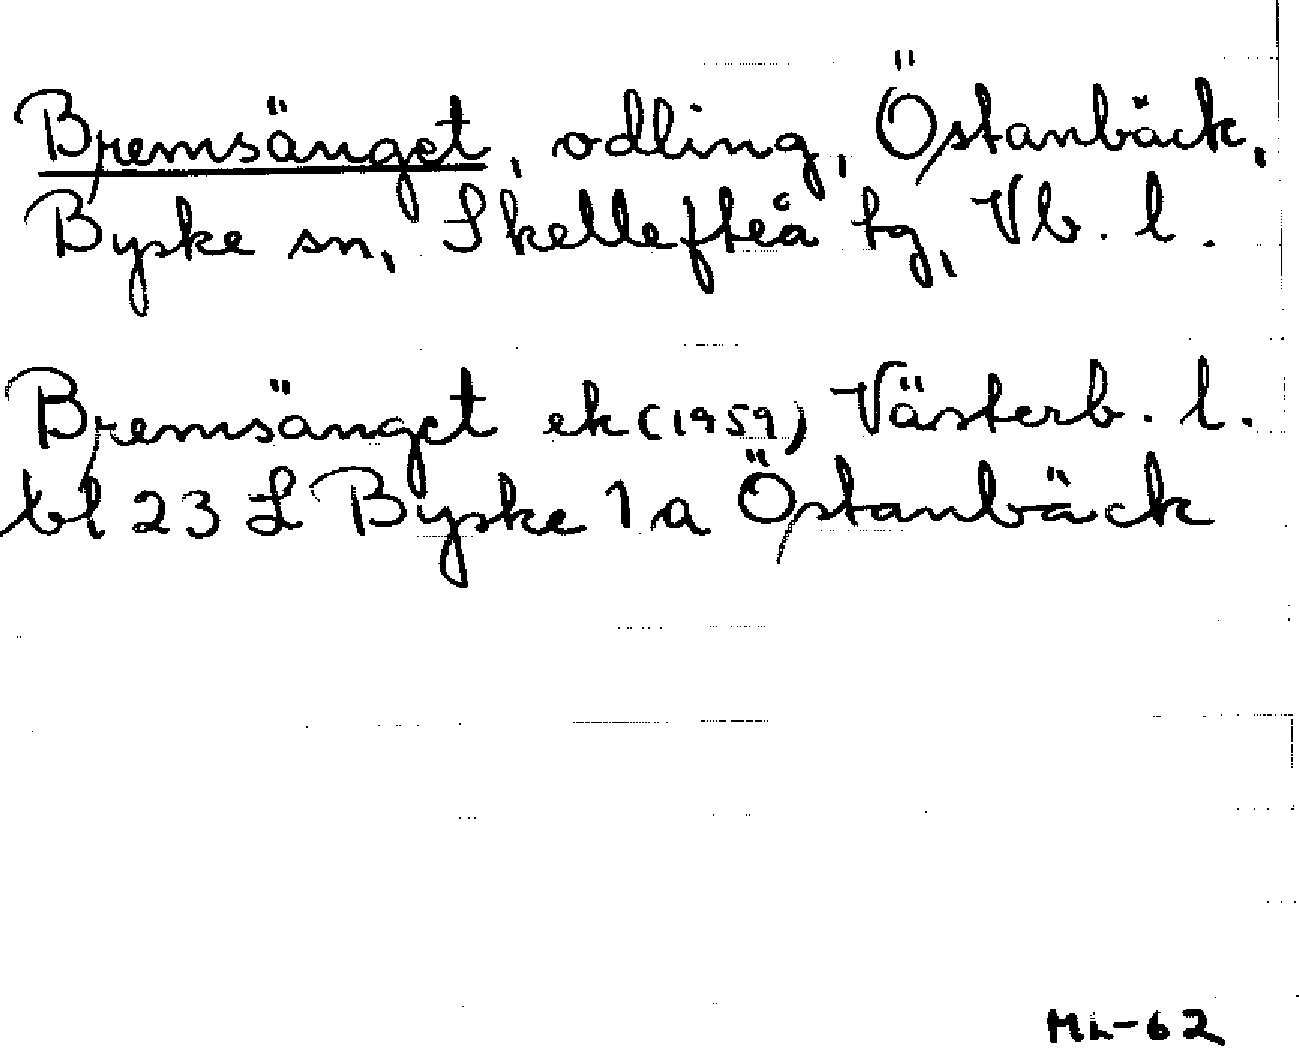 Bremsänget, odling, Östanbäck,
Byske sn, Skellefteå tg, Vb. l.
Bremsänget ek (1959) Västerb. l.
bl 23 L Byske 1a Östanbäck
ML-62